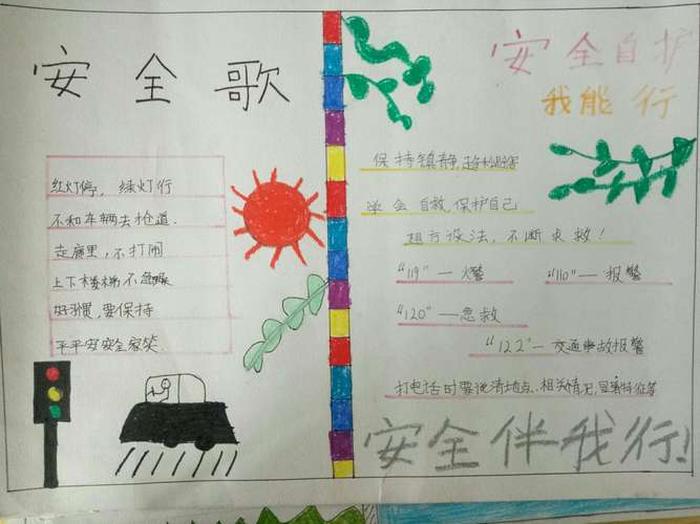 安全歌
红灯停，绿灯行
不和车辆去抢道．
走廊里，不打闹
上下楼梯不
好习惯，要保持
平平安安全家笑．
安全自护
我能行
保持镇静，趋利避害
学会自救，保护自己
想方设法，不断求救！
“119”—火警
“110”—报警
“120”—急救
“122”—交通事故报警
打电话时要说清地点．相关情况，显著特征等
安全伴我行！